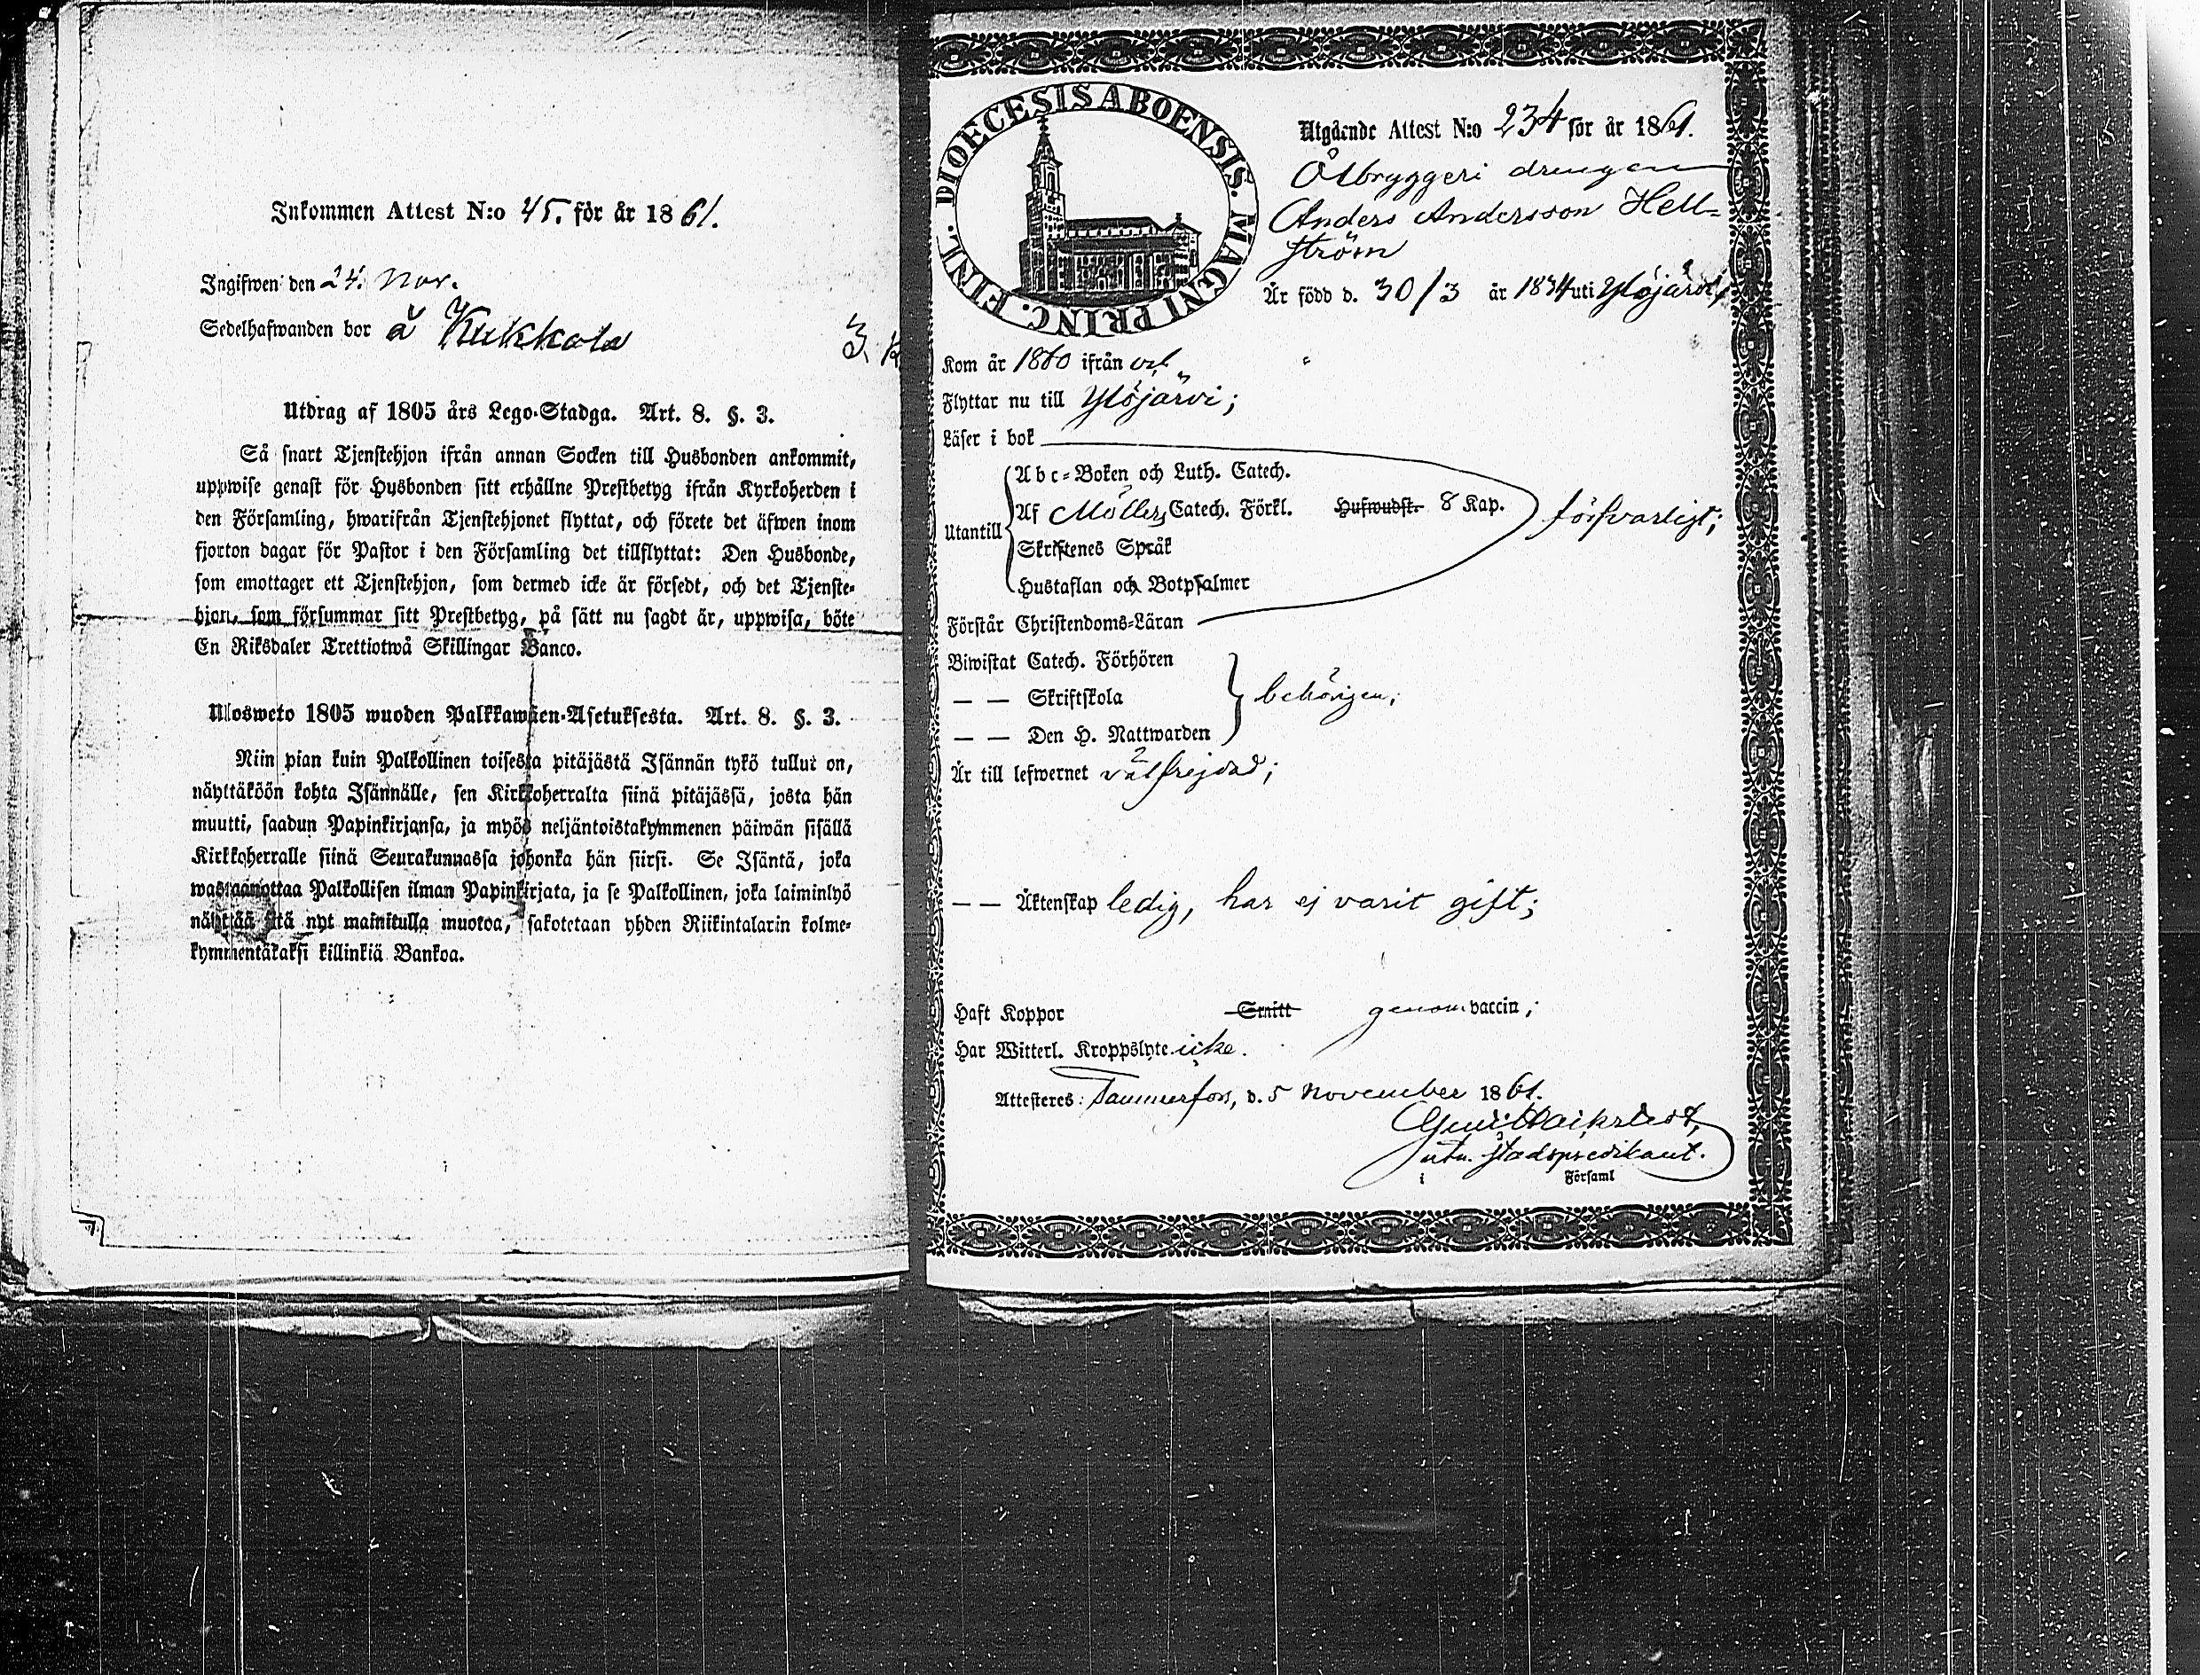 Inkommen Attest N:o 45. för år 1861.
Ingifwen den 24. Nov.
Sedelhafwanden bor å Kukkola
Utdrag af 1805 års Lego-Stadga. Art. 8. §. 3.
Så snart Tjenstehjon ifrån annan Socken till Husbonden ankommit,
uppwise genast för Husbonden sitt erhållne Prestbetyg ifrån Kyrkoherden i
den Församling, hwarifrån Tjenstehjonet flyttat, och förete det äfwen inom
fjorton dagar för Pastor i den Församling det tillflyttat: Den Husbonde,
som emottager ett Tjenstehjon, som dermed icke är försedt, och det Tjenste-
hjon, som försummar sitt Prestbetyg, på sätt nu sagdt är, uppwisa, böte
En Riksdaler Trettiotwå Skillingar Banco.
Ulosweto 1805 wuoden Palkkawäen-Asetuksesta. Art. 8. §. 3.
Niin pian kuin Palkollinen toisesta pitäjästä Isännän tykö tullut on,
näyttäköön kohta Isännälle, sen Kirkkoherralta siinä pitäjässä, josta hän
muutti, saadun Papinkirjansa, ja myös neljäntoistakymmenen päiwän sisällä
Kirkkoherralle siinä Seurakunnassa johonka hän siirsi. Se Isäntä, joka
wastaanottaa Palkollisen ilman Papinkirjata, ja se Palkollinen, joka laiminlyö
näyttää sitä nyt mainitulla muotoa, sakotetaan yhden Riikintalarin kolme-
kymmentäkaksi killinkiä Bankoa.
DIOECESIS ABOENSIS. MAGNI PRINC. FINL.
Utgående Attest N:o 234 för år 1861.
Ölbryggeri drengen
Anders Andersson Hell-
ström
Är född d. 30/3 år 1834 uti Ylöjärvi,
Kom år 1860 ifrån
Flyttar nu till Ylöjärvi;
Läser i bok
Abc-Boken och Luth. Catech.
Utantill Af Möllers Catech. Förkl. Hufwudst. 8 Kap. försvarligt;
Skriftenes Språk
Hustaflan och Botpsalmer
Förstår Christendoms-Läran
Biwistat Catech. Förhören
— — Skriftskola behörigen;
— — Den H. Nattwarden
Är till lefwernet välfrejdad;
— — Äktenskap ledig, har ej varit gift;
Haft Koppor Smitt genom vaccin;
Har Witterl. Kroppslyte icke.
Attesteres: Tammerfors, d. 5 November 1861.
stadspredikant.
i Församl